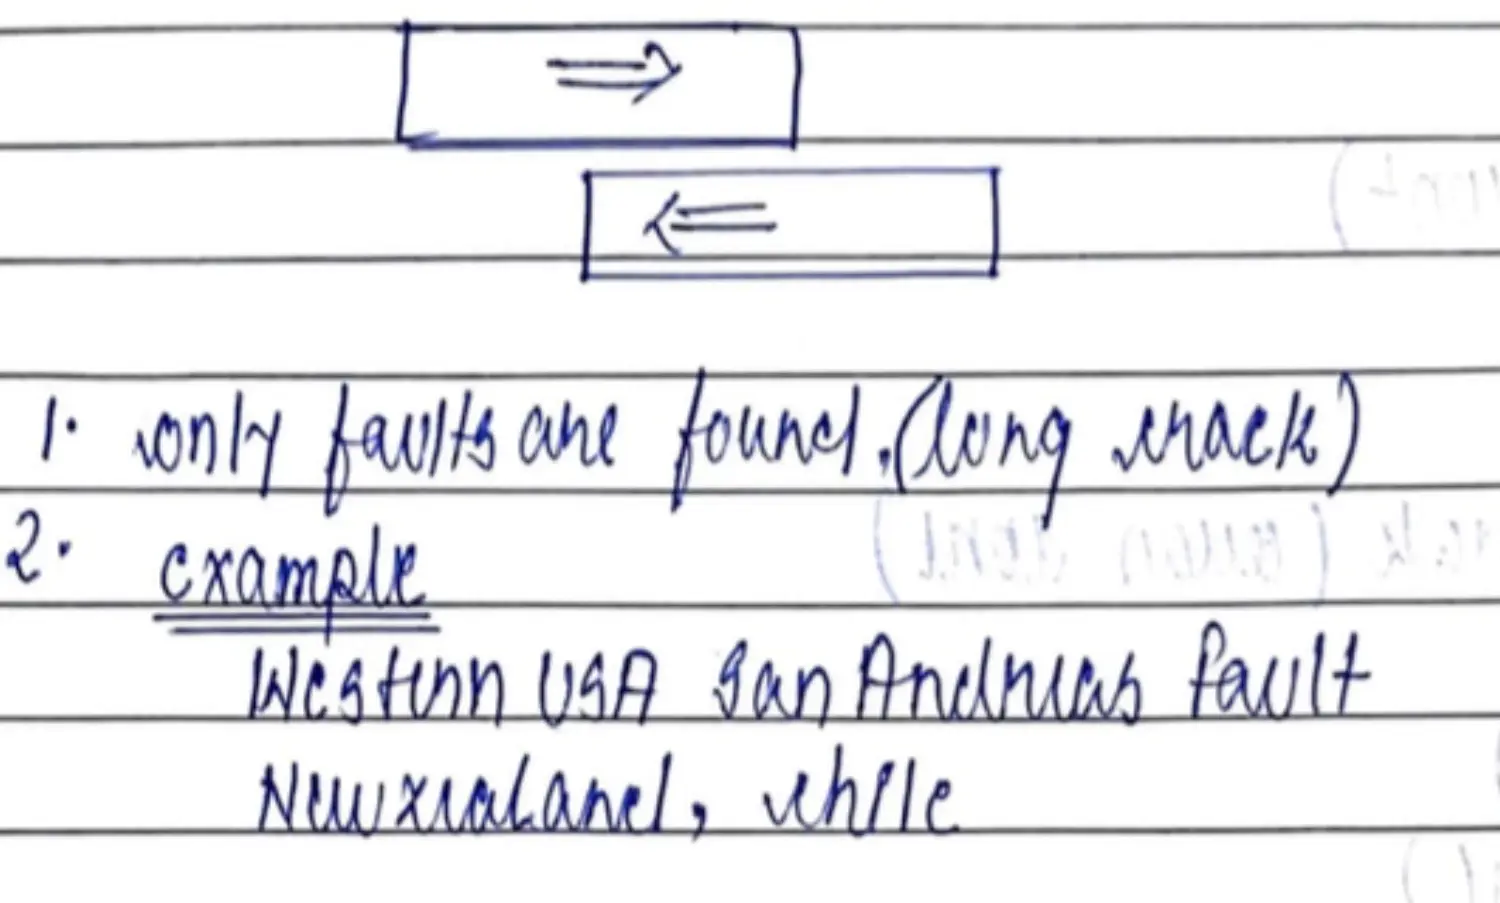 1. only faults are found. (long crack)
2. example
Western USA San Andreas fault
Newzealand, chile